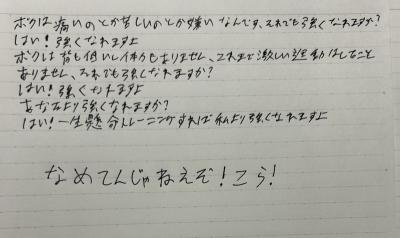 ボクは痛いのとか苦しいのとか嫌いなんです、それでも強くなれますか?
はい!強くなれますよ
ボクは背も低いし体力もありません、これまで激しい運動はしたこと
ありません、それでも強くなれますか?
はい!強くなれますよ
あなたより強くなれますか?
はい!一生懸命トレーニングすれば私より強くなれますよ
なめてんじゃねえぞ!こら!